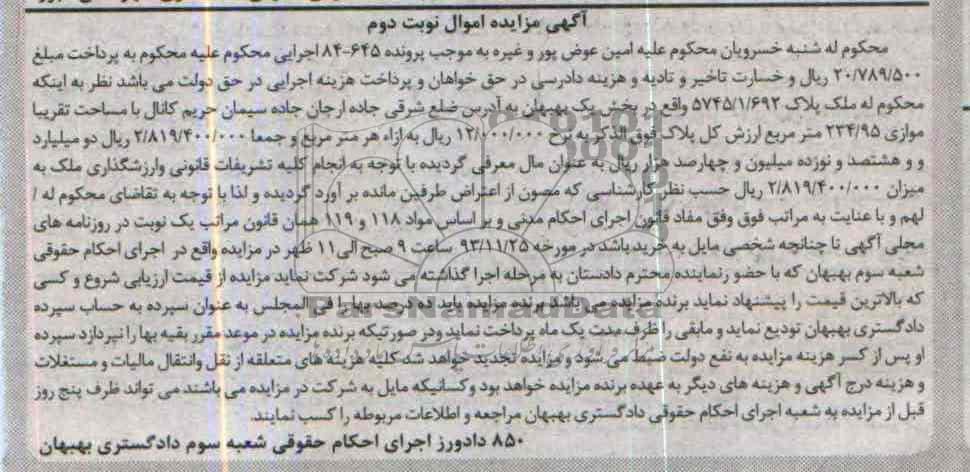 آگهی مزایده اموال نوبت دوم
محکوم له شنبه خسرویان محکوم علیه امین عوض پور و غیره به موجب پرونده ۶۴۵-۸۴ اجرایی محکوم علیه محکوم به پرداخت مبلغ
۲۰/۷۸۹/۵۰۰ ریال و خسارت تاخیر و تادیه و هزینه دادرسی در حق خواهان و پرداخت هزینه اجرایی در حق دولت می باشد نظر به اینکه
محکوم له ملک پلاک ۵۷۴۵/۱/۶۹۲ واقع در بخش یک بهبهان به آدرس ضلع شرقی جاده ارجان جاده سیمان حریم کانال با مساحت تقریبا
موازی ۲۳۴/۹۵ متر مربع ارزش کل پلاک فوق الذکر به نرخ ۱۲/۰۰۰/۰۰۰ ریال به ازاء هر متر مربع و جمعا ۲/۸۱۹/۴۰۰/۰۰۰ ریال دو میلیارد
و و هشتصد و نوزده میلیون و چهارصد هزار ریال به عنوان مال معرفی گردیده با توجه به انجام کلیه تشریفات قانونی وارزشگذاری ملک به
میزان ۲/۸۱۹/۴۰۰/۰۰۰ ریال حسب نظر کارشناسی که مصون از اعتراض طرفین مانده بر آورد گردیده و لذا با توجه به تقاضای محکوم له /
لهم و با عنایت به مراتب فوق وفق مفاد قانون اجرای احکام مدنی و بر اساس مواد ۱۱۸ و ۱۱۹ همان قانون مراتب یک نوبت در روزنامه های
محلی آگهی تا چنانچه شخصی مایل به خرید باشد در مورخه ۹۳/۱۱/۲۵ ساعت ۹ صبح الی ۱۱ ظهر در مزایده واقع در اجرای احکام حقوقی
شعبه سوم بهبهان که با حضور نماینده محترم دادستان به مرحله اجرا گذاشته می شود شرکت نماید مزایده از قیمت ارزیابی شروع و کسی
که بالاترین قیمت را پیشنهاد نماید برنده مزایده می باشد برنده مزایده باید ده درصد بها را فی المجلس به عنوان سپرده به حساب سپرده
دادگستری بهبهان تودیع نماید و مابقی را ظرف مدت یک ماه پرداخت نماید ودر صورتیکه برنده مزایده در موعد مقرر بقیه بها را نپردازد سپرده
او پس از کسر هزینه مزایده به نفع دولت ضبط می شود و مزایده تجدید خواهد شد کلیه هزینه های متعلقه از نقل وانتقال مالیات و مستغلات
و هزینه درج آگهی و هزینه های دیگر به عهده برنده مزایده خواهد بود وکسانیکه مایل به شرکت در مزایده می باشند می تواند ظرف پنج روز
قبل از مزایده به شعبه اجرای احکام حقوقی دادگستری بهبهان مراجعه و اطلاعات مربوطه را کسب نمایند.
۸۵۰ دادورز اجرای احکام حقوقی شعبه سوم دادگستری بهبهان
ParsNamadData